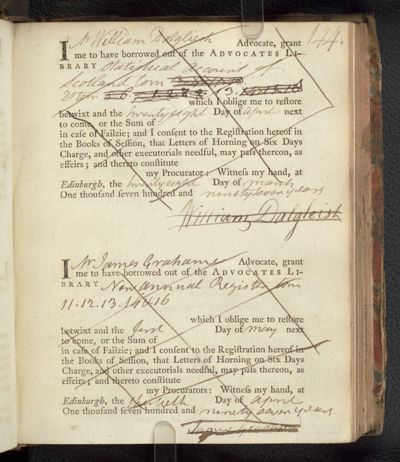 144.
I Mr William Dalgleish Advocate, grant
me to have borrowed out of the ADVOCATES LI-
BRARY Statistical Account of
Scotland tom
13.
which I oblige me to reſtore
betwixt and the twenty eight Day of April next
to come, or the Sum of
in caſe of Failzie; and I conſent to the Regiſtration hereof in
the Books of Seſſion, that Letters of Horning on Six Days
Charge, and other executorials needful, may paſs thereon, as
effeirs; and thereto conſtitute
my Procurator: Witneſs my hand, at
Edinburgh, the twenty eight Day of March
One thouſand ſeven hundred and ninety seven years
William Dalgleish
I Mr James Grahame Advocate, grant
me to have borrowed out of the ADVOCATES LI-
BRARY New Annual Register tom
11. 12. 13. 14 & 16
which I oblige me to reſtore
betwixt and the first Day of May next
to come, or the Sum of
in caſe of Failzie; and I conſent to the Regiſtration hereof in
the Books of Seſſion, that Letters of Horning on Six Days
Charge, and other executorials needful, may paſs thereon, as
effeirs; and thereto conſtitute
my Procurators: Witneſs my hand, at
Edinburgh, the Day of April
One thouſand ſeven hundred and ninety seven years
James Grahame